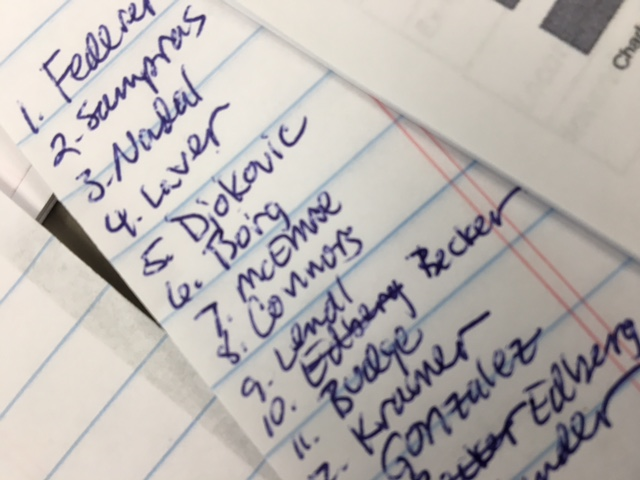 1. Federer
2. Sampras
3. Nadal
4. Laver
5. Djokovic
6. Borg
7. McEnroe
8. Connors
9. Lendl
10. Edberg Becker
11. Budge
Kramer
Gonzalez
Becker Edberg